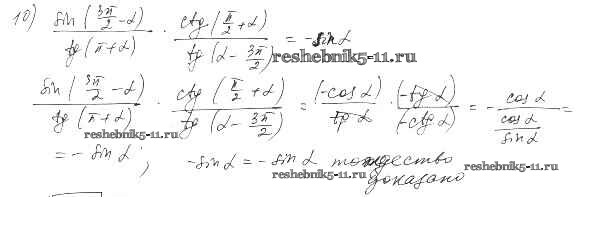 10) sin(3π/2 - α) / tg(π+α) · ctg(π/2 + α) / tg(α - 3π/2) = -sin α
reshebnik5-11.ru
sin(3π/2 - α) / tg(π+α) · ctg(π/2 + α) / tg(α - 3π/2) = (-cos α) / tg α · (-tg α) / (-ctg α) = - cos α / (cos α / sin α) =
reshebnik5-11.ru
= - sin α ; -sin α = - sin α тождество
reshebnik5-11.ru
reshebnik5-11.ru
доказано